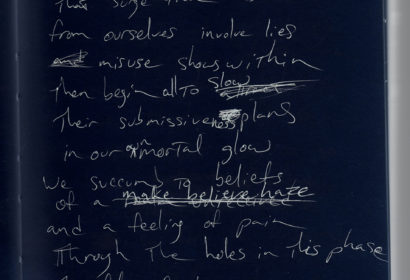 from ourselves involve lies
and misuse shows within
Then begin all to slow
Their submissiveness plans
in our own mortal glow
we succumb to beliefs
of a make believe haze
and a feeling of pain
Through The holes in this phase